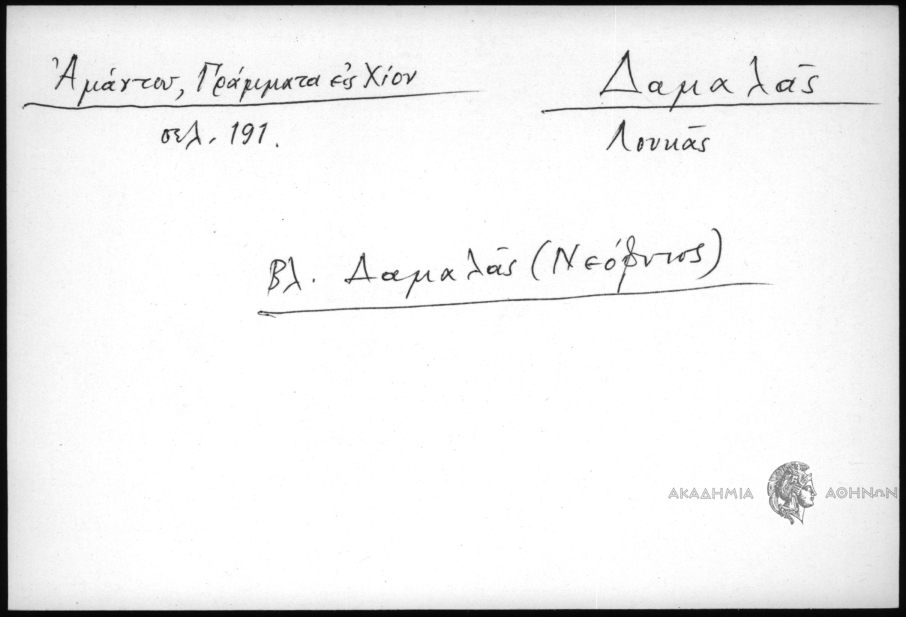 Ἀμάντου, Γράμματα εἰς Χίον
σελ. 191.
Δαμαλᾶς
Λουκᾶς
Βλ. Δαμαλᾶς (Νεόφυτος)
ΑΚΑΔΗΜΙΑ ΑΘΗΝΩΝ